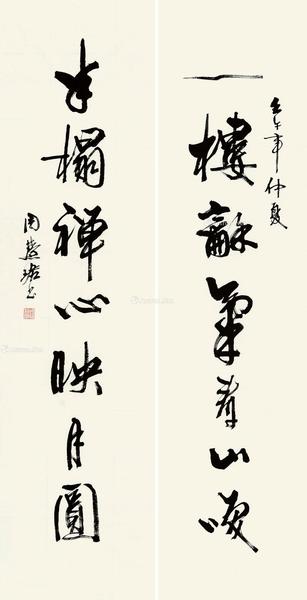 壬午年仲夏
一樓龢氣山暖
半榻禪心映月圓
周慧珺書